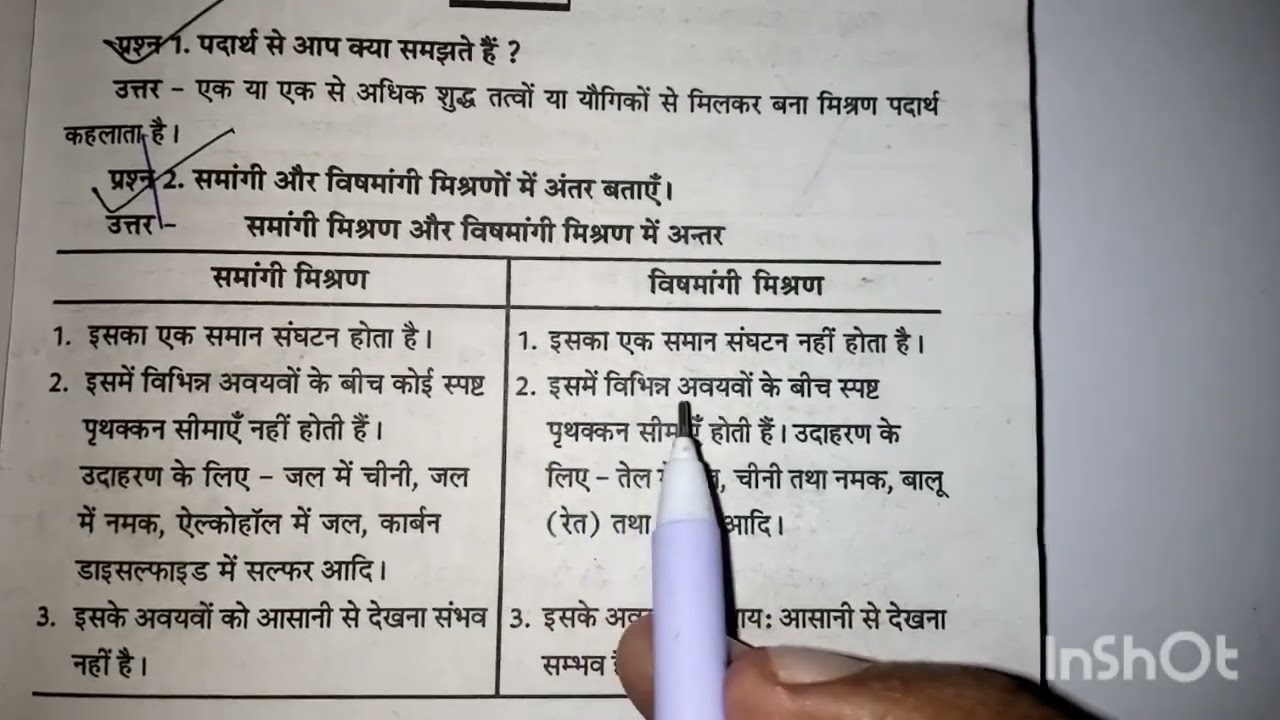 प्रश्न 1. पदार्थ से आप क्या समझते हैं ?
उत्तर – एक या एक से अधिक शुद्ध तत्वों या यौगिकों से मिलकर बना मिश्रण पदार्थ
कहलाता है।
प्रश्न 2. समांगी और विषमांगी मिश्रणों में अंतर बताएँ।
उत्तर – समांगी मिश्रण और विषमांगी मिश्रण में अन्तर
समांगी मिश्रण
1. इसका एक समान संघटन होता है।
2. इसमें विभिन्न अवयवों के बीच कोई स्पष्ट
पृथक्कन सीमाएँ नहीं होती हैं।
उदाहरण के लिए – जल में चीनी, जल
में नमक, ऐल्कोहॉल में जल, कार्बन
डाइसल्फाइड में सल्फर आदि।
3. इसके अवयवों को आसानी से देखना संभव
नहीं है।
विषमांगी मिश्रण
1. इसका एक समान संघटन नहीं होता है।
2. इसमें विभिन्न अवयवों के बीच स्पष्ट
पृथक्कन सीमाएँ होती हैं। उदाहरण के
लिए – तेल चीनी तथा नमक, बालू
(रेत) तथा आदि।
3. इसके आसानी से देखना
सम्भव
InShOt